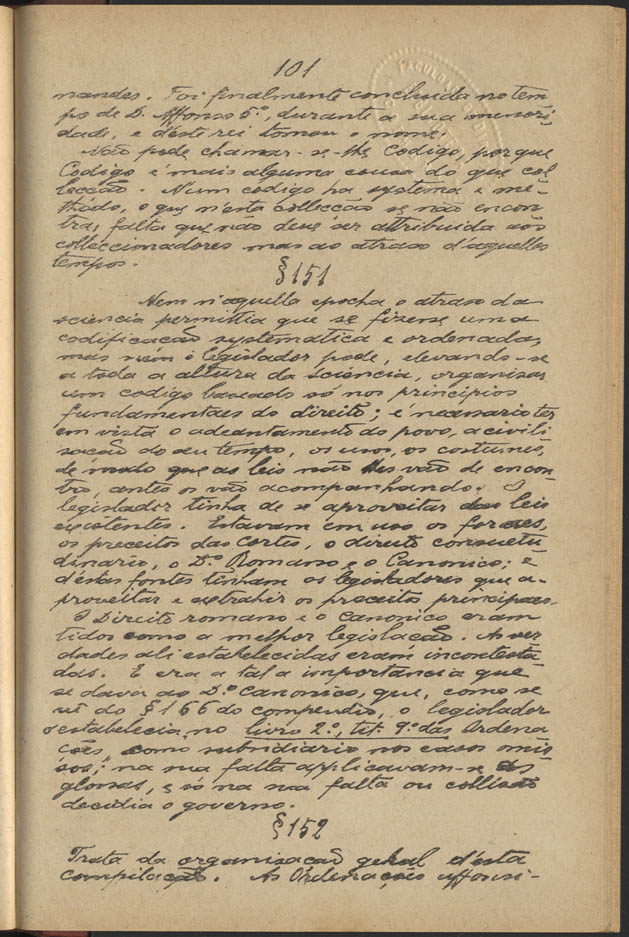 101
nandes. Foi finalmente concluida no tem-
po de D. Affonso 5º, durante a sua menori-
dade, e d'este rei tomou o nome.
Não póde chamar-se-lhe Codigo, porque
Codigo é mais alguma cousa do que col-
lecção. N'um codigo ha systema e me-
thodo, o que n'esta collecção se não encon-
tra; falta que não deve ser attribuida aos
colleccionadores mas ao atraso d'aquelles
tempos.
§151
Nem n'aquella epocha o atraso da
sciencia permittia que se fizesse uma
codificação systematica e ordenada,
mas nem o legislador pode, elevando-se
a toda a altura da sciencia, organisar
um codigo baseado só nos principios
fundamentaes do direito; é necessario ter
em vista o adeantamento do povo, a civili-
sação do seu tempo, os usos, os costumes,
de modo que as leis não lhes vão de encon-
tro, antes os vão acompanhando. O
legislador tinha de se aproveitar das leis
existentes. Estavam em uso os foraes,
os preceitos das Cortes, o direito consuetu-
dinario, o D.º Romano e o Canonico; e
d'estas fontes tinham os legisladores que a-
proveitar e extrahir os preceitos principaes.
O Direito romano e o canonico eram
tidos como a melhor legislação. As ver-
dades ali estabelecidas eram incontesta-
das. E era a tal a importancia que
se dava ao D.º Canonico, que, como se
vê do §166 do compendio, o legislador
o estabelecia no livro 2º, tit. 9º das Ordena-
ções como subsidiario nos casos omis-
sos; na sua falta applicavam-se as
glosas, e só na sua falta ou collisão
decidia o governo.
§152
Trata da organisação geral d'esta
compilação. As Ordenações affonsi-